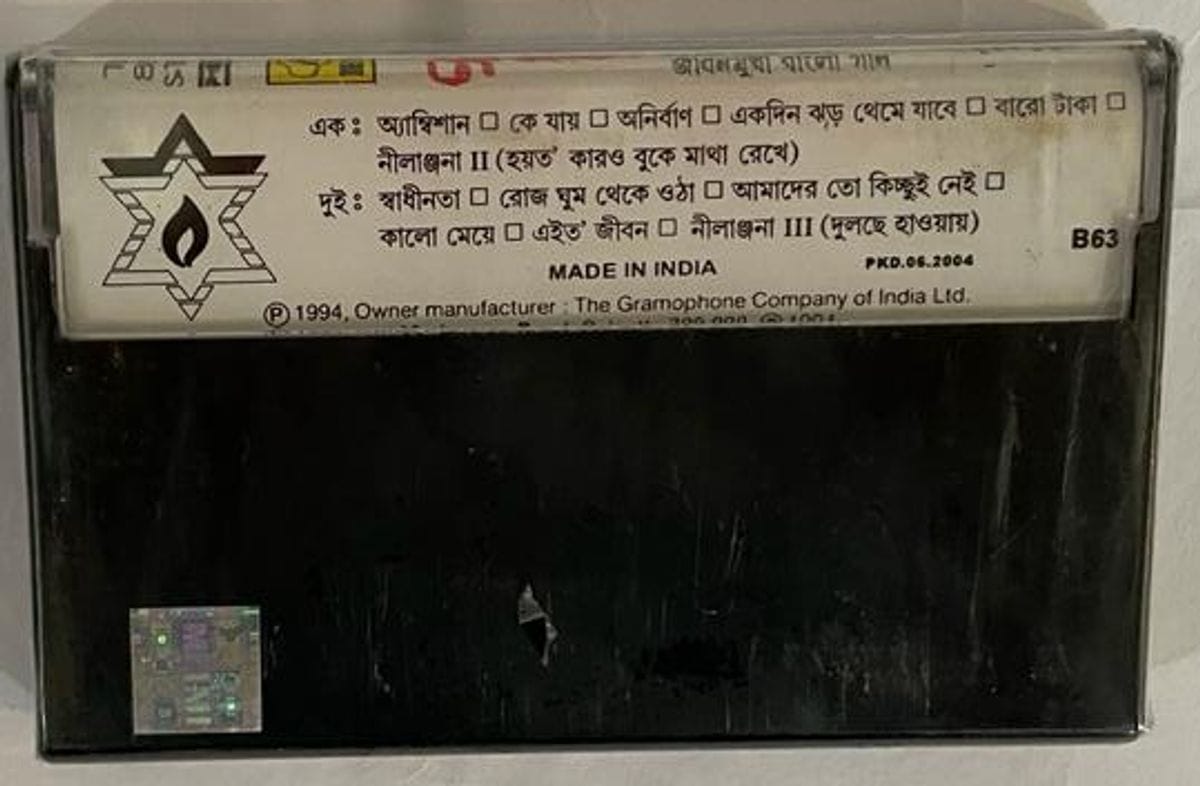 একঃ অ্যাম্বিশান □ কে যায় □ অনির্বাণ □ একদিন ঝড় থেমে যাবে □ বারো টাকা □
নীলাঞ্জনা II (হয়ত' কারও বুকে মাথা রেখে)
দুইঃ স্বাধীনতা □ রোজ ঘুম থেকে ওঠা □ আমাদের তো কিচ্ছুই নেই □
কালো মেয়ে □ এইত' জীবন □ নীলাঞ্জনা III (দুলছে হাওয়ায়)
B63
MADE IN INDIA PKD.06.2004
Ⓟ 1994, Owner manufacturer : The Gramophone Company of India Ltd.